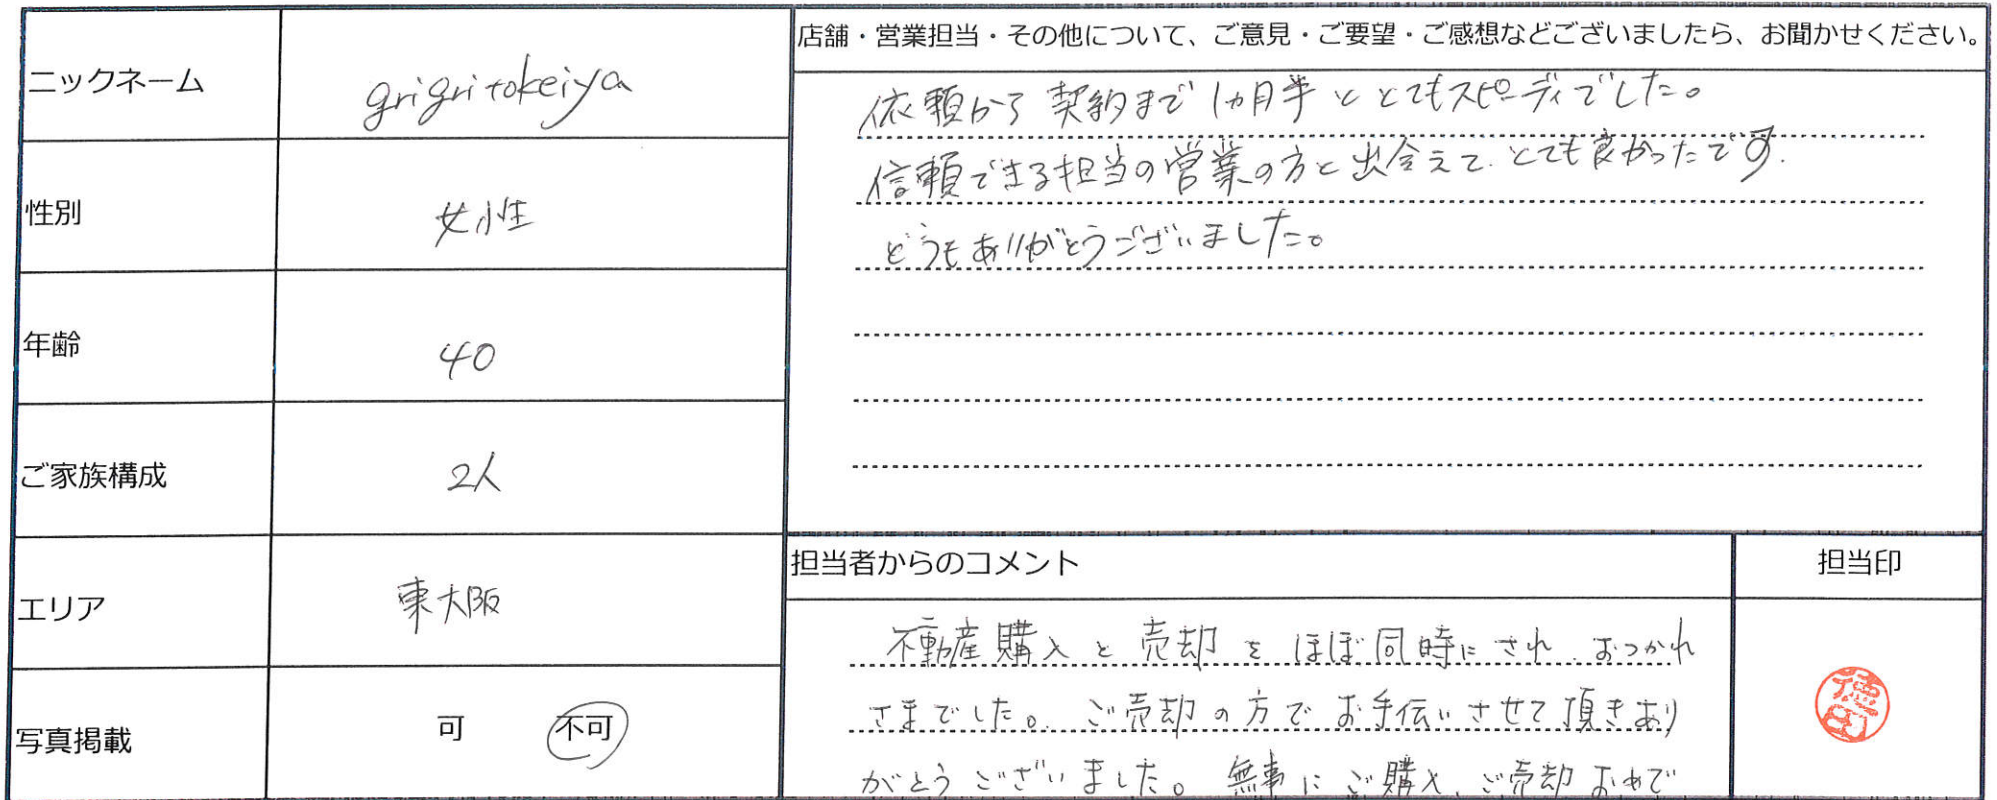 ニックネーム
grigritokeiya
性別
女性
年齢
40
ご家族構成
2人
エリア
東大阪
写真掲載
可 不可
店舗・営業担当・その他について、ご意見・ご要望・ご感想などございましたら、お聞かせください。
依頼から契約まで1ヵ月半ととてもスピーディでした。
信頼できる担当の営業の方と出会えて、とても良かったです.
どうもありがとうございました。
担当者からのコメント
不動産購入と売却をほぼ同時にされ、おつかれ
さまでした。ご売却の方でお手伝いさせて頂きあり
がとうございました。無事にご購入、ご売却おめで
担当印
徳田